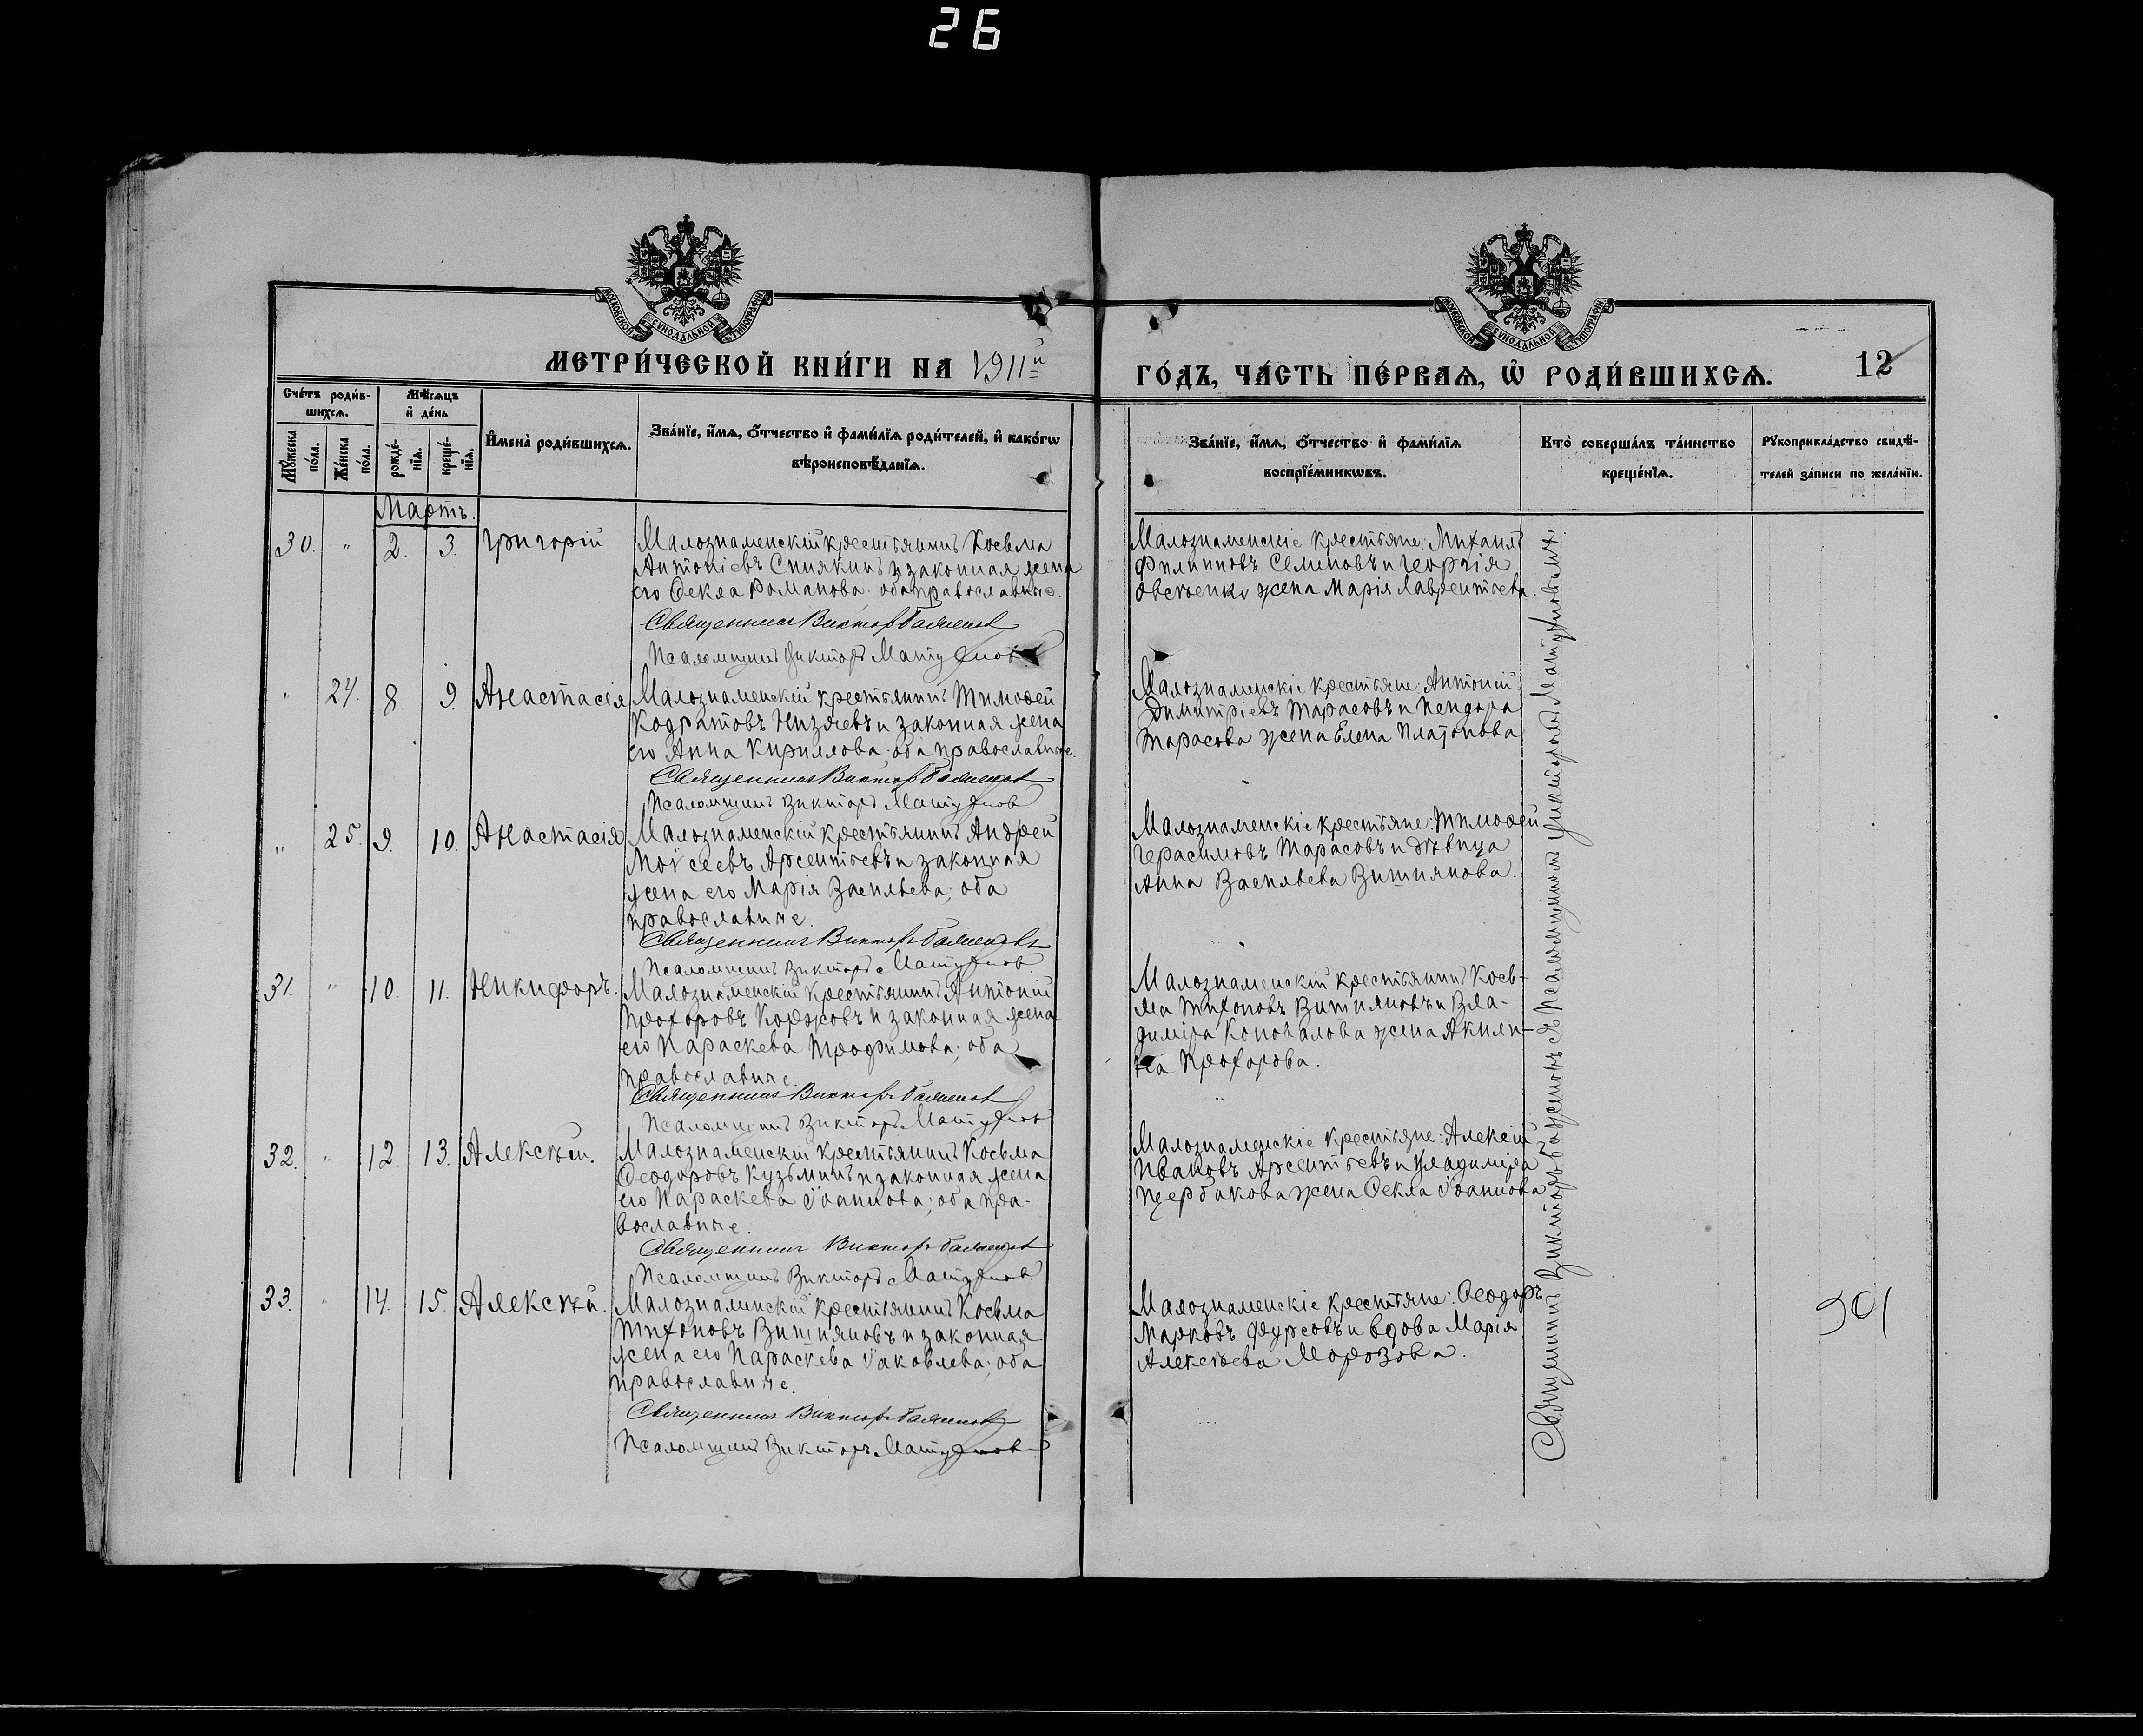 26
МОСКОВСКОЙ СѴНОДАЛЬНОЙ ТИПОГРАФІИ
МОСКОВСКОЙ СѴНОДАЛЬНОЙ ТИПОГРАФІИ
МЕТРИ́ЧЕСКОЙ КНИ́ГИ НА 1911й
ГО́ДЪ, ЧА́СТЬ ПЕ́РВАѦ, Ѡ РОДИ́ВШИХСѦ.
12
Сче́тъ роди́в-
шихсѧ.
Мѣ́сѧцъ
и҆ де́нь
Мꙋ́жеска
по́ла.
Же́нска
по́ла.
рожде́-
нїѧ.
креще́-
нїѧ.
И҆мена̀ роди́вшихсѧ.
Зва́нїе, и҆́мѧ, ѻ҆́тчество и҆ фами́лїѧ роди́телей, и҆ како́гѡ
вѣроисповѣ́данїѧ.
Зва́нїе, и҆́мѧ, ѻ҆́тчество и҆ фами́лїѧ
воспрїе́мникѡвъ.
Кто̀ соверша́лъ та́инство
креще́нїѧ.
Рꙋкоприкла́дство свидѣ́-
телей за́писи по жела́нїю.
Мартъ.
30. " 2. 3. Григорій
Малознаменскій крестьянинъ Косьма
Антоніевъ Синякинъ и законная жена
его Ѳекла Романова. оба православные.
Священникъ Викторъ
Псаломщикъ Викторъ Матуѳновъ
Малознаменскіе крестьяне: Михаилъ
Филипповъ Семеновъ и Георгія
Овсѣенко жена Марія Лаврентьева.
" 24. 8. 9. Анастасія
Малознаменскій крестьянинъ Тимоѳей
Кодратовъ Низяевъ и законная жена
его Анна Кириллова. оба православные.
Священникъ Викторъ
Псаломщикъ Викторъ
Малознаменскіе крестьяне: Антоній
Димитріевъ Тарасовъ и
Тарасова жена Елена Платонова
" 25. 9. 10. Анастасія
Малознаменскій крестьянинъ Андрей
Моѵсеевъ Арсентьевъ и законная
жена его Марія Васильева; оба
православные.
Священникъ Викторъ
Псаломщикъ Викторъ
Малознаменскіе крестьяне: Тимоѳей
Герасимовъ Тарасовъ и дѣвица
Анна Васильева Вишнякова.
31. " 10. 11. Никифоръ.
Малознаменскій крестьянинъ Антоній
Прохоровъ Коржовъ и законная жена
его Параскева Трофимова; оба
православные.
Священникъ Викторъ
Псаломщикъ Викторъ
Малознаменскій крестьянинъ Кось-
ма Тихоновъ и Вла-
диміра Коновалова жена Акили-
на Прохорова.
32. " 12. 13. Алексѣй.
Малознаменскій крестьянинъ Косьма
Ѳеодоровъ Кузьминъ и законная жена
его Параскева Іоаннова; оба пра-
вославные.
Священникъ Викторъ
Псаломщикъ Викторъ
Малознаменскіе крестьяне: Алексій
Ивановъ Арсентьевъ и Владиміра
Щербакова жена Ѳекла Іоаннова
33. " 14. 15. Алексѣй.
Малознаменскій крестьянинъ Косьма
Тихоновъ и законная
жена его Параскева Іаковлева; оба
православные.
Священникъ Викторъ
Псаломщикъ Викторъ
Малознаменскіе крестьяне: Ѳеодоръ
Марковъ Фурсовъ и вдова Марія
Алексѣева Морозова.
Священникъ Викторъ съ Псаломщикомъ Викторомъ